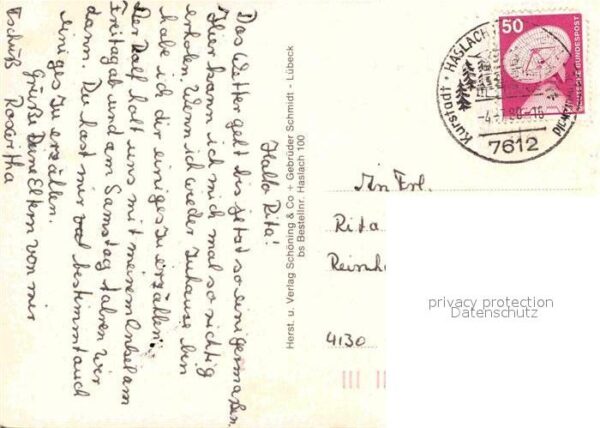 Hallo Rita!
Das Wetter geht bis jetzt so einigermaßen.
Hier kann ich mich mal so richtig
erholen. Wenn ich wieder zuhause bin
habe ich dir einiges zu erzählen.
Der Rolf holt uns mit meinem Onkel am
Freitag ab und am Samstag fahren wir
dann. Du hast mir bestimmt auch
einiges zu erzählen.
Grüße Deine Eltern von mir
Tschüß Roswitha
Herst. u. Verlag Schöning & Co + Gebrüder Schmidt - Lübeck
bs Bestellnr. Haslach 100
50
DEUTSCHE BUNDESPOST
Kurstadt · HASLACH
7612
An Frl.
Rita
Reinh
4130
privacy protection
Datenschutz